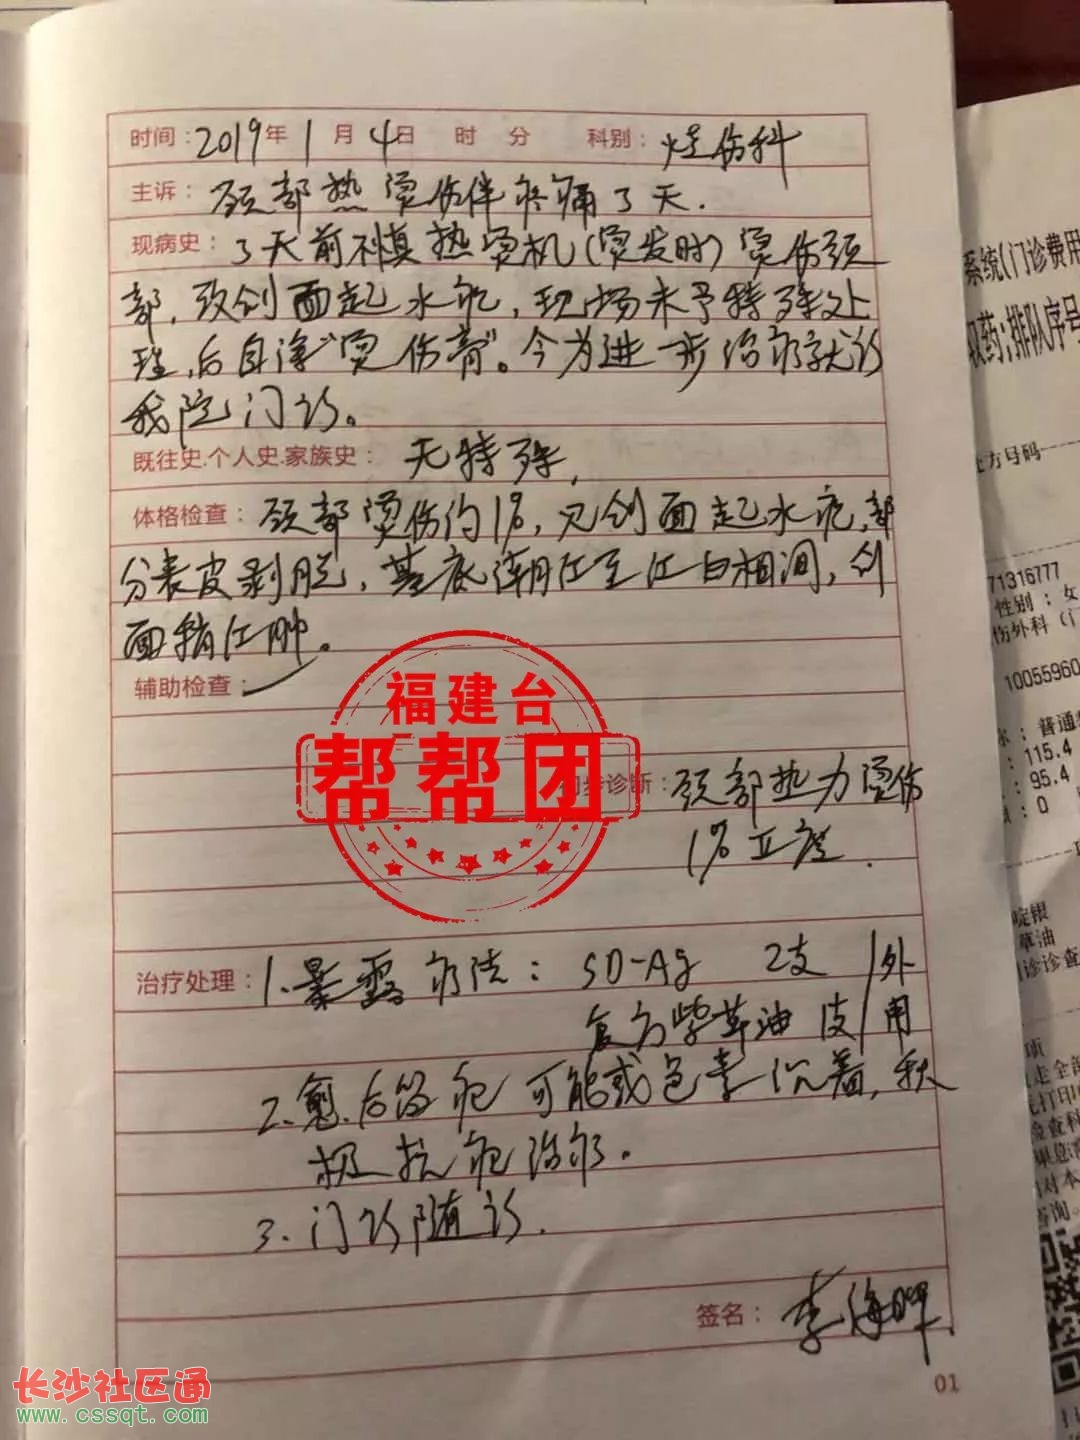 时间：2019年1月4日 时 分 科别：烧伤科
主诉：颈部热烫伤伴疼痛3天.
现病史：3天前不慎热烫机(烫发时)烫伤颈
部，致创面起水疱，现场未予特殊处
理，后自涂"烫伤膏"。今为进一步治疗就诊
我院门诊。
既往史.个人史.家族史：无特殊,
体格检查：颈部烫伤约1%，见创面起水疱,部
分表皮剥脱，基底潮红至红白相间，创
面稍红肿。
辅助检查：
福建台
帮帮团
初步诊断：颈部热力烫伤
1% II度.
治疗处理：1.暴露疗法：SD-Ag 2支 /外
复方紫草油 /用
2.愈后留疤可能或色素沉着,积
极抗疤治疗.
3.门诊随诊.
签名：李海晖
01
长沙社区通
www.cssqt.com
系统(门诊费用
取药;排队序号
处方号码
71316777
性别：女
伤外科（门
10055960
：普通
：115.4
：95.4
：0
啶银
草油
诊诊查
项